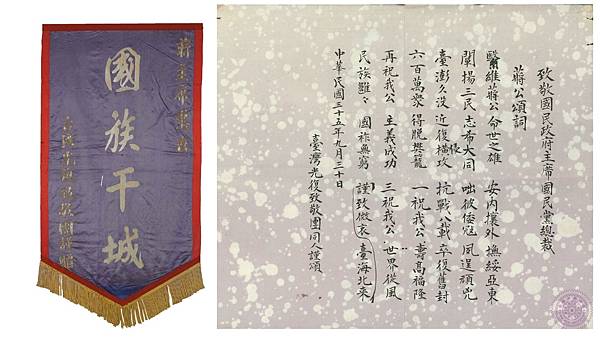 蔣主席惠存
國族干城
台灣光復致敬團謹贈
致敬國民政府主席國民黨總裁
蔣公頌詞
繄維蔣公 命世之雄 安內攘外 撫綏亞東
闡揚三民 志希大同 咄彼倭寇 夙逞頑兇
臺澎久沒 近復橫攻 抗戰八載 卒復舊封
六百萬眾 得脫樊籠 一祝我公 壽高福隆
再祝我公 主義成功 三祝我公 世界從風
民族雖々 國祚無窮 謹致微衷 臺海北來
中華民國三十五年九月三十日
臺灣光復致敬團同人謹頌